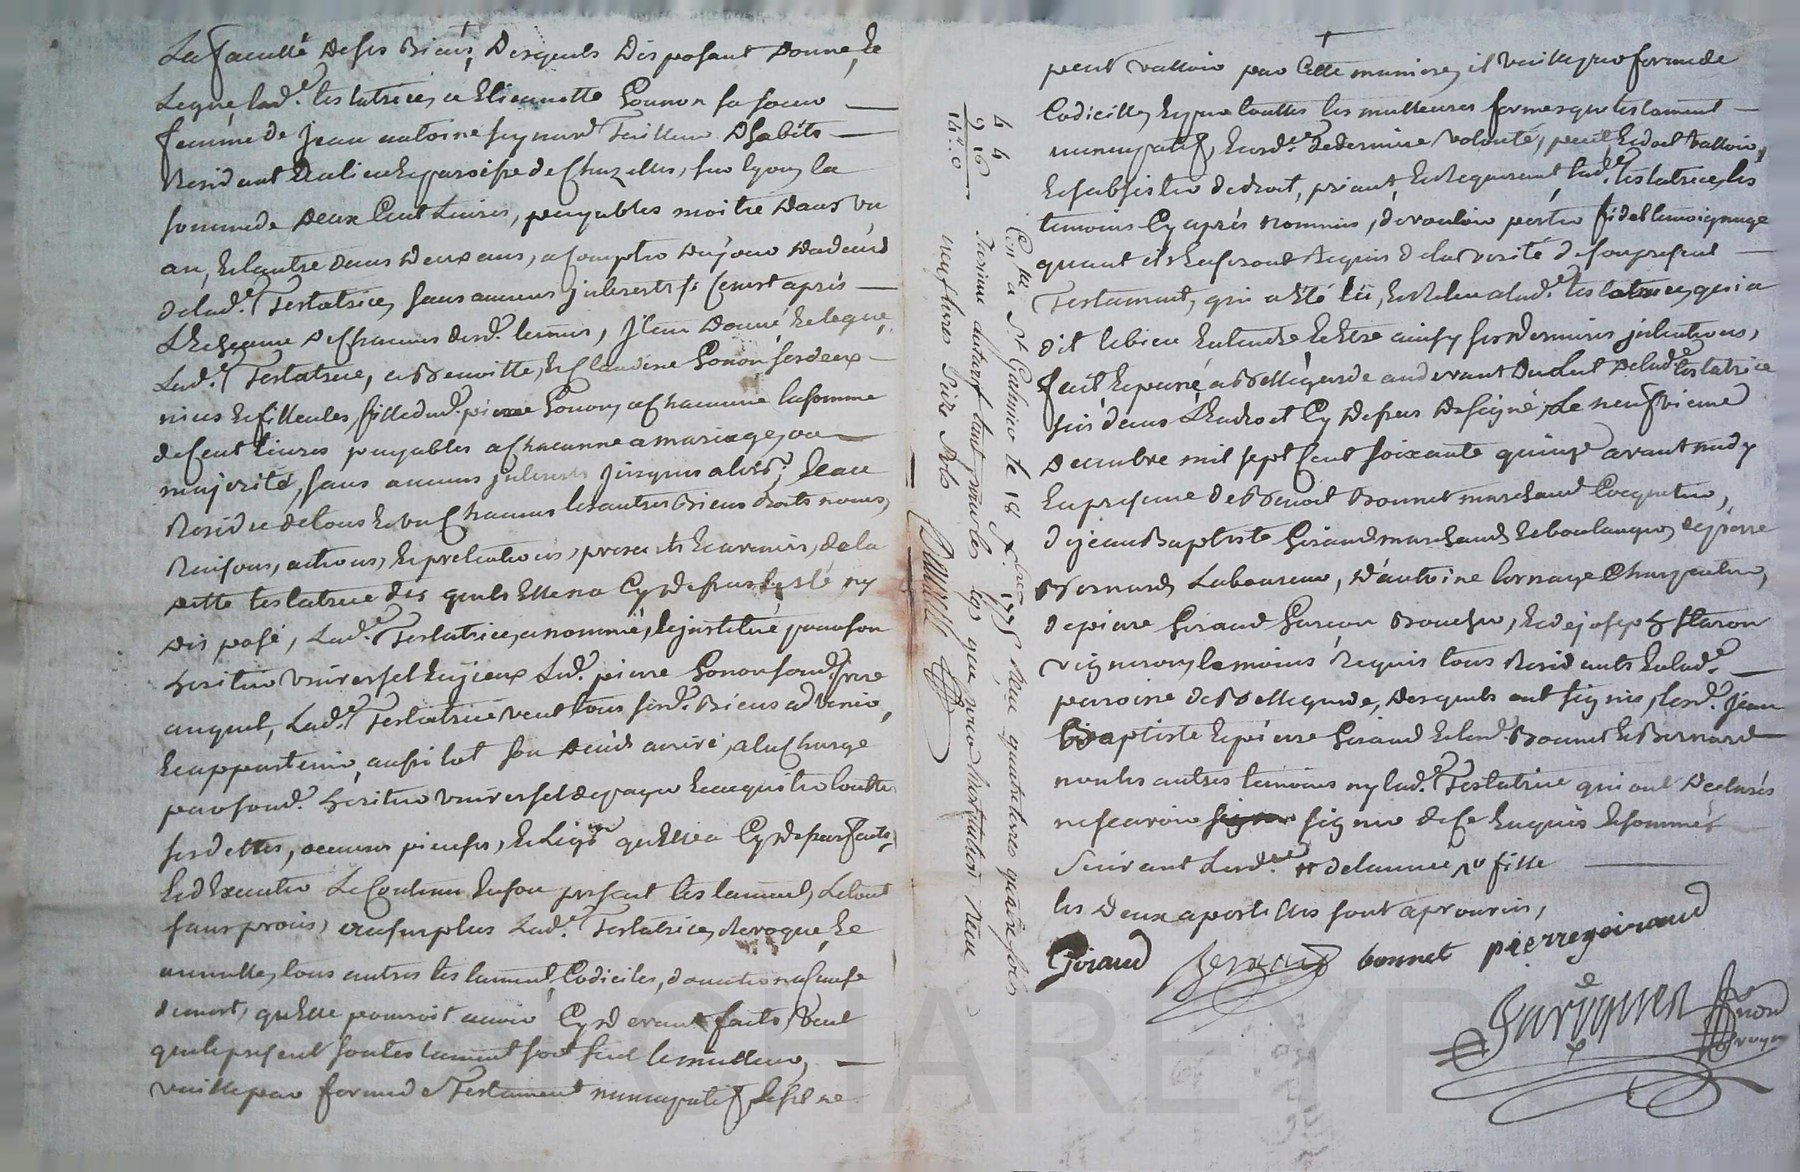 La faculté de ses Biens, Desquels Disposant Donne, Et
Legue lad.e testatrice, a Etiennette Gonnon sa soeur
femme de jean antoine seignard Tailleur D'habits
Resident Au lieu Et paroisse de Chazelles, sur lyon, la
somme de Deux Cent Livres, payables moitié Dans un
an, Et lautre dans Deux ans, a Compter Du jour Du deces
de lad.e Testatrice, sans aucuns interests si Cenest aprés
L'Echeance De Chacuns desd. termes, item Donne Et legue,
Lad.e Testatrice, a Benoitte, Et Claudine Gonon ses deux
nieces Et filleules, filles dud. pierre Gonon, a Chacune la somme
de Cent livres payables a Chacunne a mariage, ou
majorité, sans aucuns interests jusques alors; Et au
Residu de tous Et un Chacuns les autres Biens droits noms,
Raisons, actions, Et pretentions, presents Et avenir, de la
ditte testatrice des quels Elle n'a Cy Devant testé ny
Disposé, Lad.e Testatrice, a nommé, Et institué pour son
heritier universel Led. pierre Gonon sond. frere
auquel, Lad.e Testatrice veut tous sesd. Biens advenir,
Et appartenir, aussitot son Deces arrivé, a la Charge
par sond. heritier universel de payer Et acquitter toutte
ses dettes, oeuvres pieuses, Et Legs qu'Elle a Cy Devant faits,
Et d'Executer Le Contenu En son present testament, Le tout
sans procés, Et au surplus Lad.e Testatrice, Revoque, Et
annulle, tous autres testament, Codiciles, donation a Cause
de mort, qu'Elle pourroit avoir Cy devant faits, Veut
que le present son testament soit seul le meilleur,
vaille par forme de Testament nuncupatif, Et s'il ne
peut valloir par Cette maniere, il vaille par forme de
Codicille, Et par touttes les meilleures formes que testament
nuncupatif, Et ord.ce de derniere volonté, peut, Et doit valloir,
Et subsister de droit, priant, Et Requerant, lad.e testatrice, les
temoins Cy aprés nommés, de vouloir porter fidel temoignage
quant ils En seront Requis de la verité de son present
Testament, qui a Eté lû, Et Relu a lad.e testatrice, qui a
dit le bien Entendre Et Etre ainsy ses dernieres intentions,
fait, Et passé a Bellegarde au devant Du Lit De lad.e testatrice
sis dans L'Endroit Cy Dessus Designé, Le neufvieme
Decembre mil sept Cent soixante quinze avant midy
En presence de Benoit Bonnet marchand Coquetier,
de jean Baptiste Giraud marchand Et boulanger, de pierre
Bernard Laboureur, D'antoine Charpentier,
de pierre Giraud Garçon Boucher, Et de joseph staron
vigneron, temoins Requis tous Residents En lad.e
paroisse de Bellegarde, Desquels ont signés, lesd. jean
Baptiste Et pierre Giraud Et led. Bonnet Et Bernard
non les autres temoins ny lad.e Testatrice qui ont Declarés
ne scavoir signer de Ce Enquis Et sommés
Suivant L'ord.ce
les Deux apostilles sont aprouvés,
Giraud bonnet pierre goiraud
4 4
2 16
14 : 0
Con.lle a St Galmier le 18 X.bre 1775 Reçu quatorze
neuf livres Dix sols
I CHAREYRON